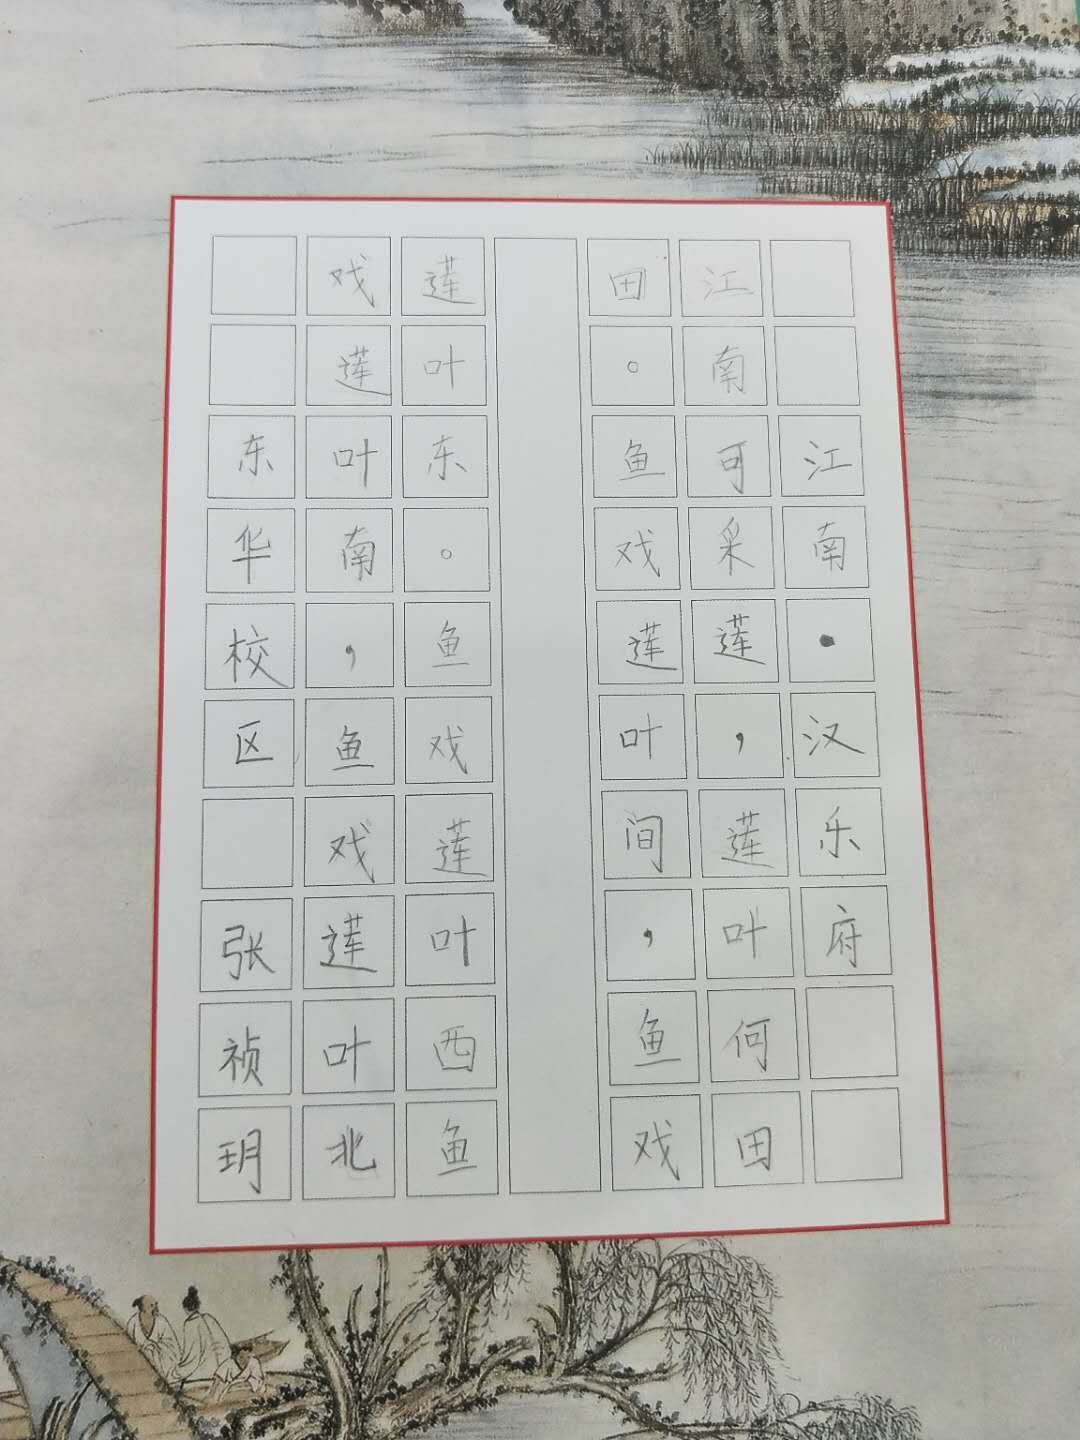 江南·汉乐府
江南可采莲，莲叶何田
田。鱼戏莲叶间，鱼戏
莲叶东。鱼戏莲叶西鱼
戏莲叶南，鱼戏莲叶北
东华校区 张祯玥